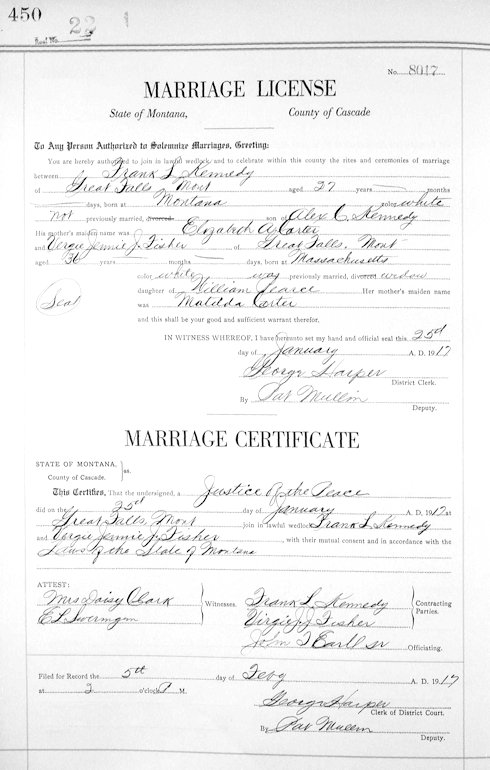 450
Roul No. 22 1
No. 8017
MARRIAGE LICENSE
State of Montana, County of Cascade
To Any Person Authorized to Solemnize Marriages, Greeting:
You are hereby authorized to join in lawful wedlock and to celebrate within this county the rites and ceremonies of marriage
between Frank L Kennedy
of Great Falls Mont aged 27 years — months
— days, born at Montana color white
Not previously married, divorced son of Alex C. Kennedy
His mother's maiden name was Elizabeth A Carter
and Vergie Jennie J. Fisher of Great Falls, Mont
aged 36 years — months — days, born at Massachusetts
color white was previously married, divorced widow
Seal
daughter of William Pearce Her mother's maiden name
was Matilda Carter
and this shall be your good and sufficient warrant therefor.
IN WITNESS WHEREOF, I have hereunto set my hand and official seal this 25d
day of January A. D. 1917
George Harper
District Clerk.
By Pat Mullin
Deputy.
MARRIAGE CERTIFICATE
STATE OF MONTANA, ss.
County of Cascade.
This Certifies, That the undersigned, a Justice of the Peace
did on the 25d day of January A. D. 1917 at
Great Falls, Mont join in lawful wedlock Frank L. Kennedy
and Vergie Jennie J. Fisher, with their mutual consent and in accordance with the
Laws of the State of Montana
ATTEST:
Mrs Daisy Clark Witnesses. Frank L Kennedy Contracting Parties.
E L Virgie J. Fisher
John T Earll Sr Officiating.
Filed for Record the 5th day of Feby A. D. 1917
at 2 o'clock P M.
George Harper
Clerk of District Court.
By Pat Mullin
Deputy.